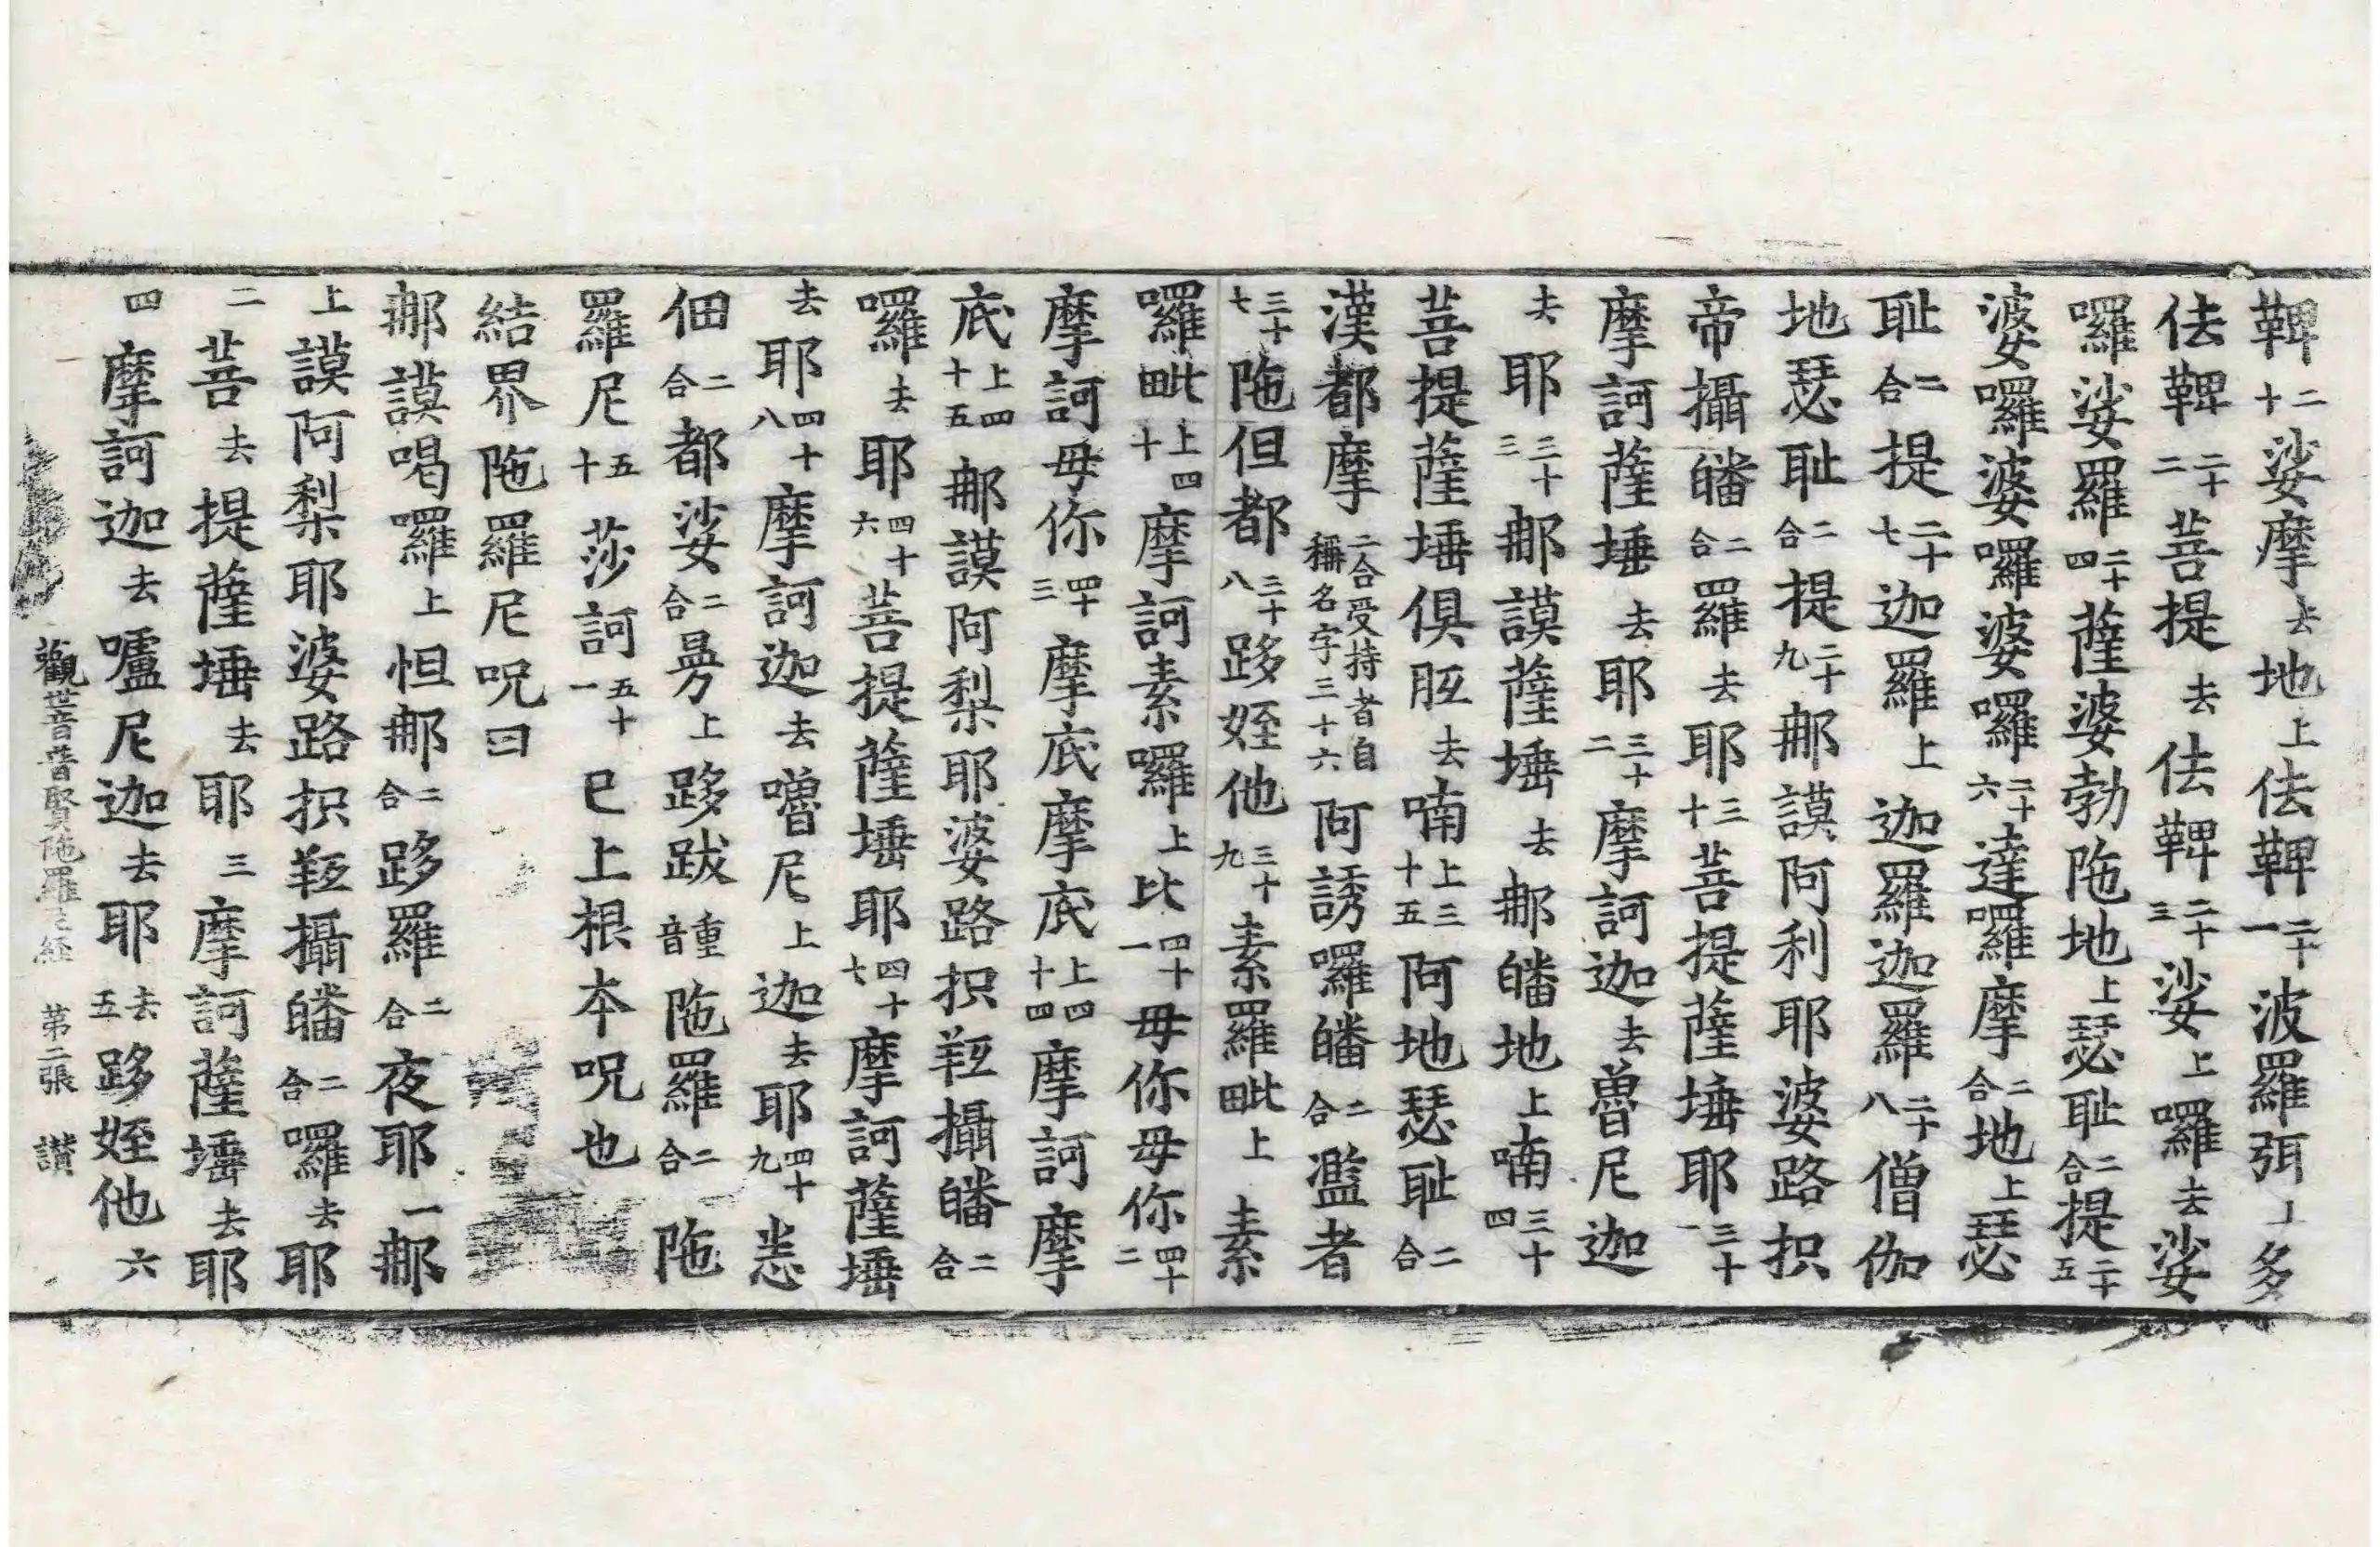 鞞二十娑摩去地上佉鞞二十一波羅弭多
佉鞞二十二菩提去佉鞞二十三娑上囉去娑
囉娑羅二十四薩婆勃陁地上瑟耻二合提二十五
婆囉婆囉婆囉二十六達囉摩二合地上瑟
耻二合提二十七迦羅上迦羅迦羅二十八僧伽
地瑟耻二合提二十九那謨阿利耶婆路抧
帝攝皤二合羅去耶三十菩提薩埵耶三十一
摩訶薩埵去耶三十二摩訶迦去魯尼迦
去耶三十三那謨薩埵去那皤地上喃三十四
菩提薩埵俱胝去喃上三十五阿地瑟耻二合
漢都摩二合受持者自稱名字三十六阿誘囉皤二合濫者
三十七陁但都三十八跢姪他三十九素羅毗上素
囉毗上四十摩訶素囉上比四十一毋你毋你四十二
摩訶毋你四十三摩底摩底上四十四摩訶摩
底上四十五那謨阿梨耶婆路抧羟攝皤二合
囉去耶四十六菩提薩埵耶四十七摩訶薩埵
去耶四十八摩訶迦去嚕尼上迦去耶四十九悉
佃二合都娑二合㬅上跢跋重音陁羅二合陁
羅尼五十莎訶五十一巳上根本呪也
結界陁羅尼呪曰
那謨喝囉上怛那二合跢羅二合夜耶一那
上謨阿梨耶婆路抧羟攝皤二合囉去耶
二菩去提薩埵去耶三摩訶薩埵去耶
四摩訶迦去嚧尼迦去耶去五跢姪他六
觀世音普賢陁羅尼經 第二張 讃